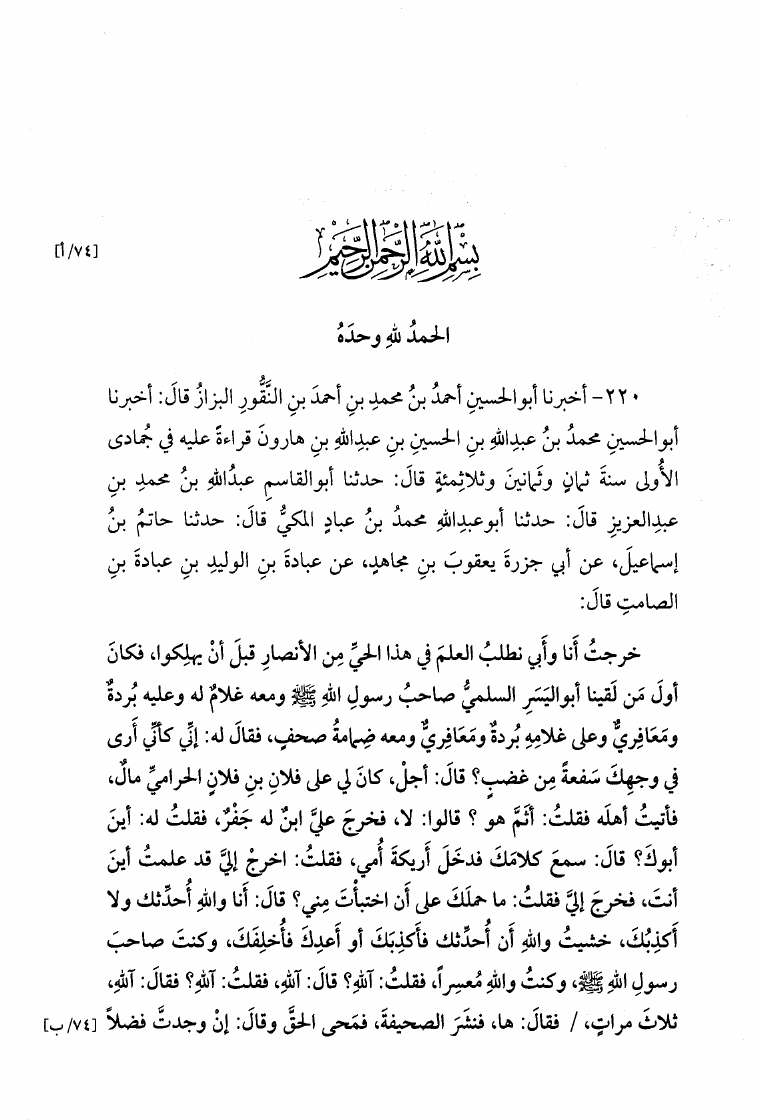 بِسْمِ اللَّهِ الرَّحْمَنِ الرَّحِيمِ
[٧٤/أ]
الحمدُ للهِ وحدَهُ
٢٢٠- أخبرنا أبوالحسينِ أحمدُ بنُ محمدِ بنِ أحمدَ بنِ النَّقُّورِ البزازُ قالَ: أخبرنا
أبوالحسينِ محمدُ بنُ عبدِاللهِ بنِ الحسينِ بنِ عبدِاللهِ بنِ هارونَ قراءةً عليه في جُمادى
الأُولى سنةَ ثمانٍ وثَمانينَ وثلاثِمئةٍ قالَ: حدثنا أبوالقاسمِ عبدُاللهِ بنُ محمدِ بنِ
عبدِالعزيزِ قالَ: حدثنا أبوعبدِاللهِ محمدُ بنُ عبادٍ المكيُّ قالَ: حدثنا حاتمُ بنُ
إسماعيلَ، عن أبي جزرةَ يعقوبَ بنِ مجاهدٍ، عن عبادةَ بنِ الوليدِ بنِ عبادةَ بنِ
الصامتِ قالَ:
خرجتُ أَنا وأَبي نطلبُ العلمَ في هذا الحيِّ مِن الأنصارِ قبلَ أنْ يهلِكوا، فكانَ
أولَ مَن لَقينا أبواليَسَرِ السلميُّ صاحبُ رسولِ اللهِ ﷺ ومعه غلامٌ له وعليه بُردةٌ
ومَعَافِريٌّ وعلى غلامِهِ بُردةٌ ومَعَافِريٌّ ومعه ضِمامةُ صحفٍ، فقالَ له: إنِّي كأنِّي أَرى
في وجهِكَ سَفعةً مِن غضبٍ؟ قالَ: أجلْ، كانَ لي على فلانِ بنِ فلانٍ الحراميِّ مالٌ،
فأتيتُ أهلَه فقلتُ: أثَمَّ هو ؟ قالوا: لا، فخرجَ عليَّ ابنٌ له جَفْرٌ، فقلتُ له: أينَ
أبوكَ؟ قالَ: سمعَ كلامَكَ فدخَلَ أَريكةَ أُمي، فقلتُ: اخرجْ إليَّ قد علمتُ أينَ
أنتَ، فخرجَ إليَّ فقلتُ: ما حملَكَ على أَن اختبأْتَ مِني؟ قالَ: أَنا واللهِ أُحدِّثك ولا
أَكذِبُكَ، خشيتُ واللهِ أَن أُحدِّثك فأَكذِبَكَ أو أَعدِكَ فأُخلِفَكَ، وكنتَ صاحبَ
رسولِ اللهِ ﷺ، وكنتُ واللهِ مُعسِراً، فقلتُ: آللهِ؟ قالَ: آللهِ، فقلتُ: آللهِ؟ فقالَ: آللهِ،
ثلاثَ مراتٍ، / فقالَ: ها، فنشَرَ الصحيفةَ، فمَحى الحقَّ وقالَ: إنْ وجدتَّ فضلاً [٧٤/ب]